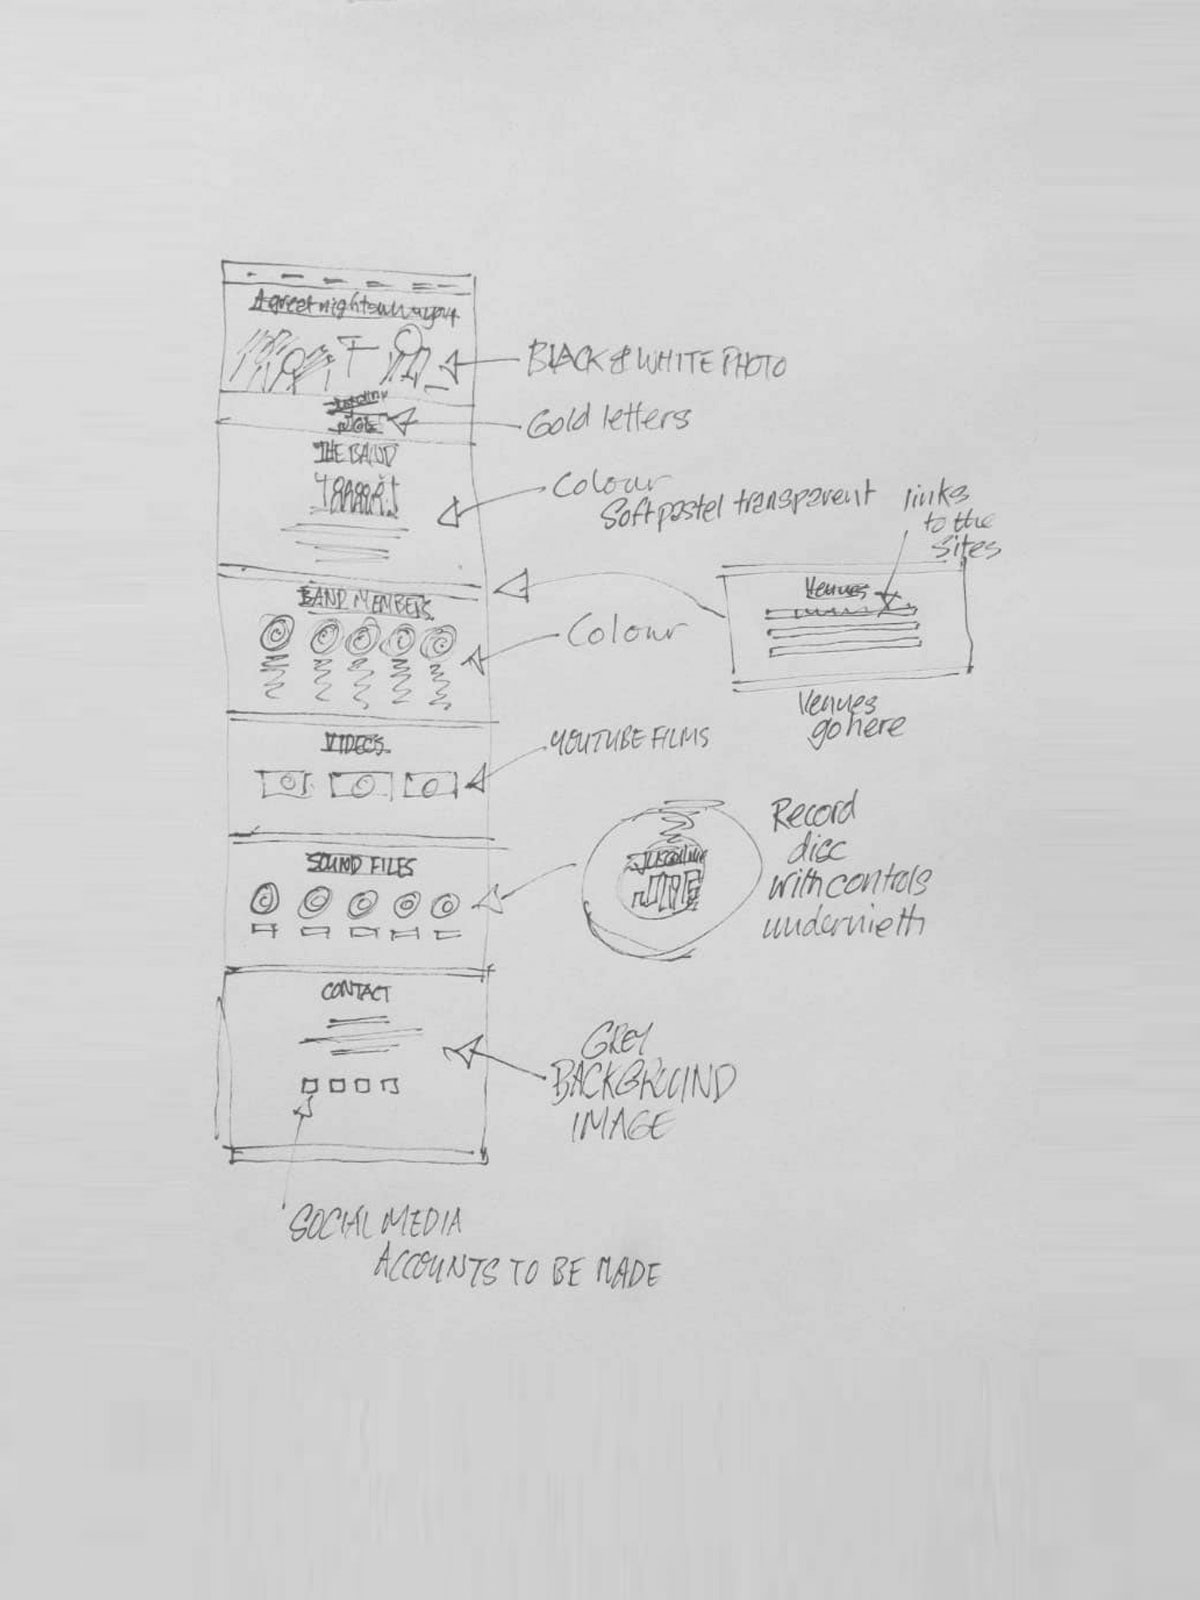 A great night's
BLACK & WHITE PHOTO
Gold letters
THE BAND
Colour
Soft pastel transparent
links
to the
sites
BAND MEMBERS
Colour
Venues
Venues
go here
VIDEOS
YOUTUBE FILMS
SOUND FILES
Record
disc
with controls
undernieth
CONTACT
GREY
BACKGROUND
IMAGE
SOCIAL MEDIA
ACCOUNTS TO BE MADE